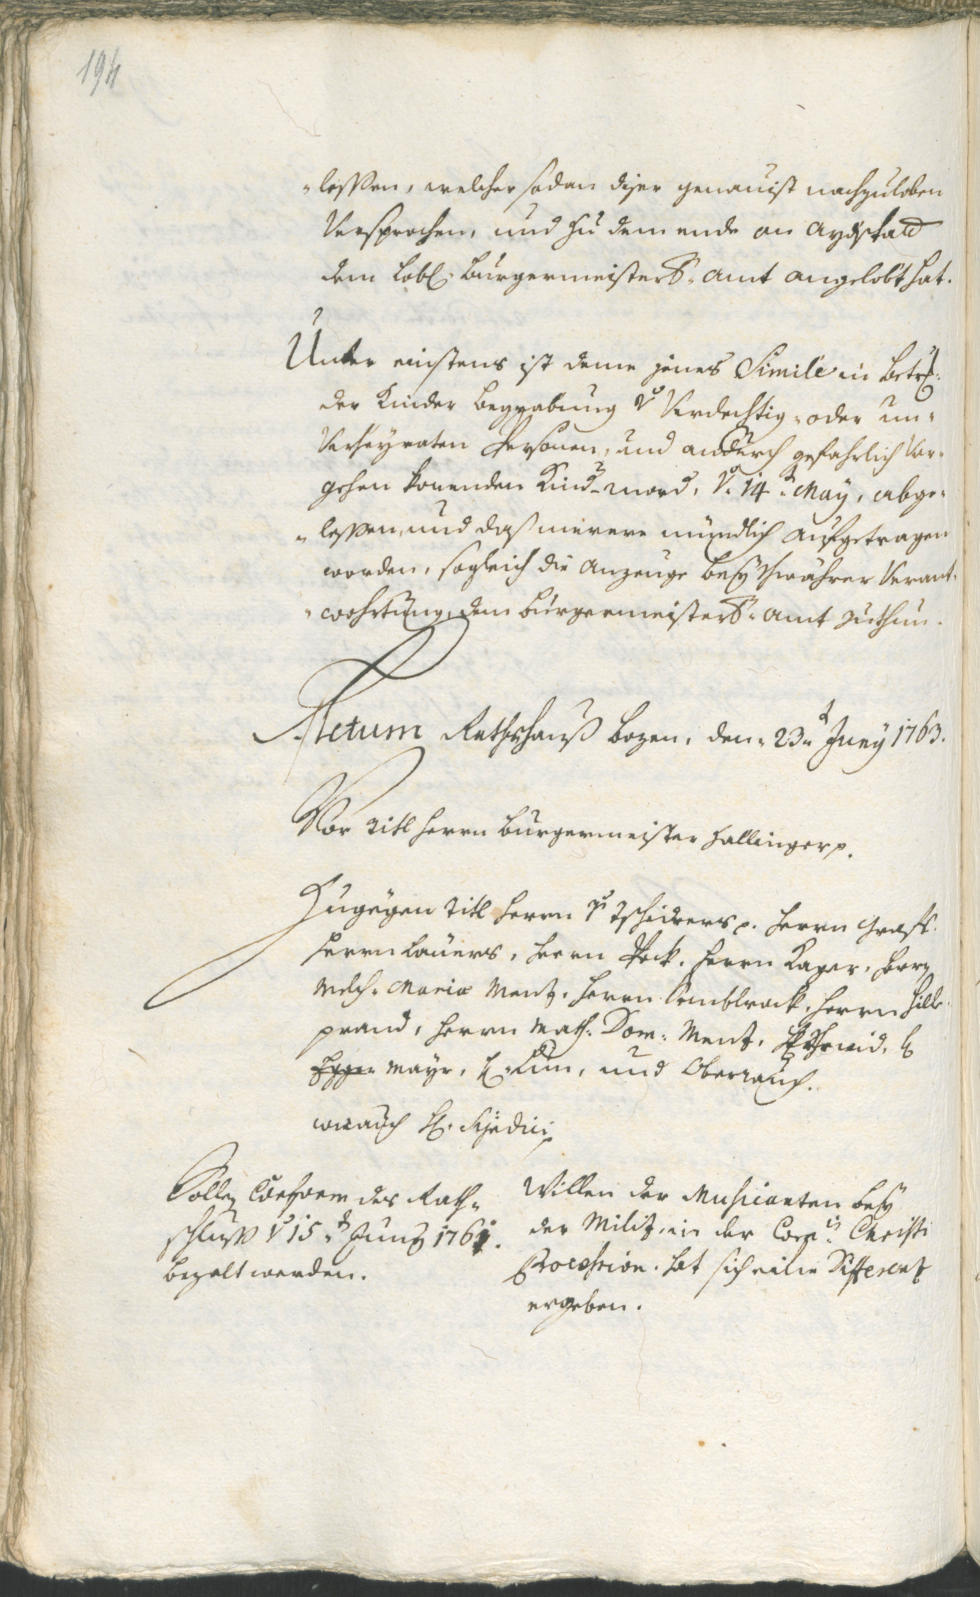 194
„lessen, welcher sodan diser genauist nachzuleben
Versprochen, und zu dem ende an Aydstatt
dem Lobl: Burgermeisters-amt angelobt hat.
Unter einstens ist deme jenes Simile in betref
der Kinder begrabung v Verdechtig- oder un-
Verheyraten Persohnen, und andurch gefahrlich Vor-
gehen konenden Kind-mord, v. 14t. May, abge-
„lessen, und das merere mündlich aufgetragen
worden, sogleich die anzeuge bey schwährer Verant-
„wohrtung dem Burgermeisters-amt zuthun.
Actum Rathshauß Bozen, den 23t Juny 1763.
Vor Titl Herrn Burgermeister Hallinger p.
Zugegen Titl Herrn v Tschidrers p. Herrn Graff.
Herrn Lauers, Herrn Pock. Herrn Kager, Herrn
Melch. Maria Mentz, Herrn Semblrock, Herrn Hille-
prand, Herrn Math: Dom: Mentz, H Schmid, H
Egger Mayr, H Kun, und Oberrauch.
wie auch H.
Sollen Conform des Rath-
schluß v 15t Juny 1761.
bezalt werden.
Willen der Musicanten bey
der Militz in der Corpis Christi
Procession. hat sich eine Differenz
ergeben.